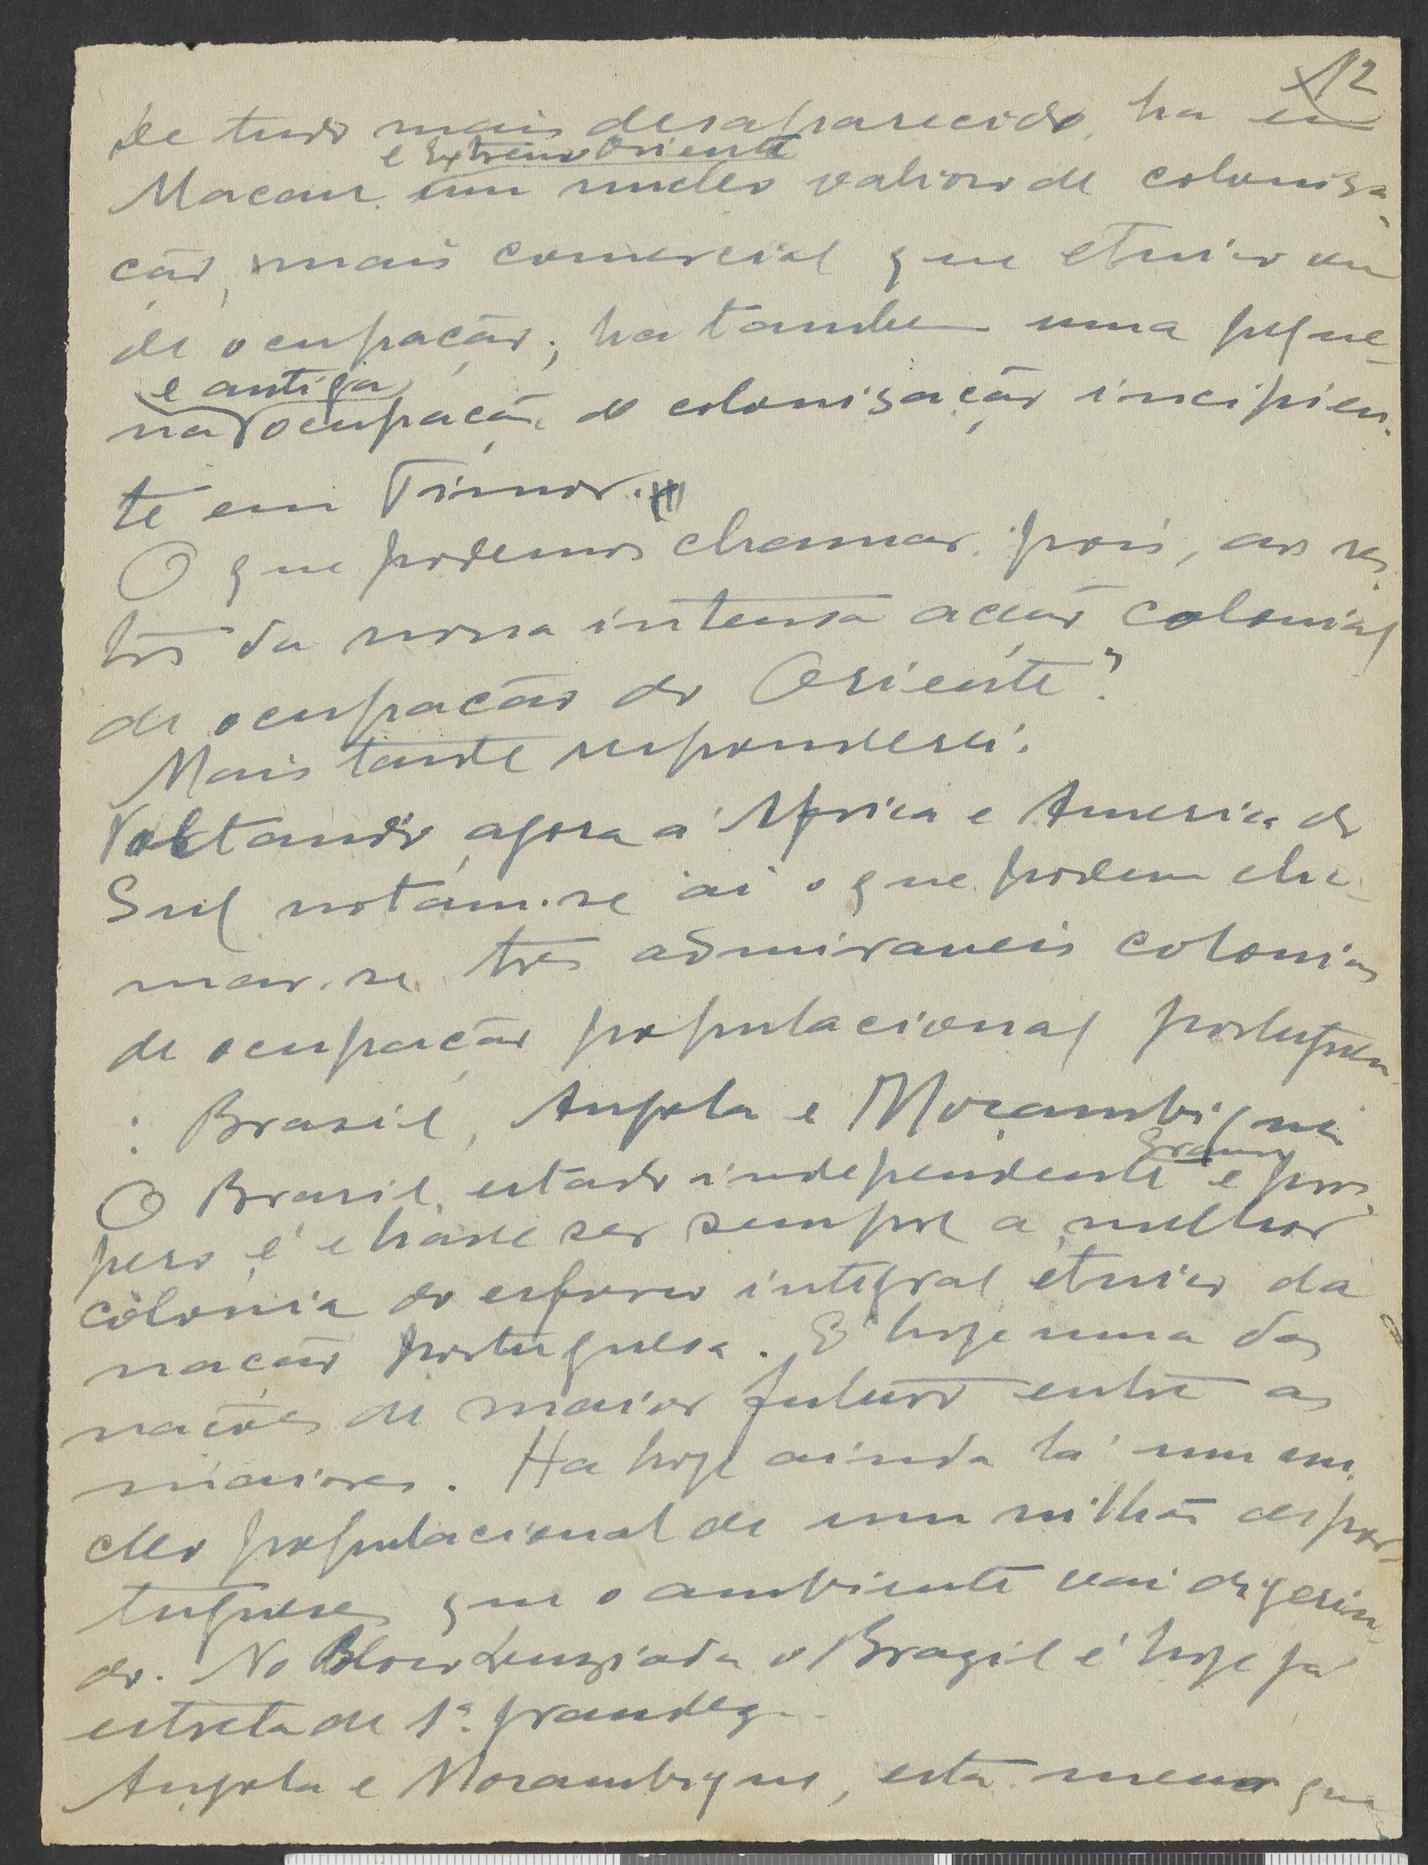 12
De tudo mais desaparecido, ha em
e Extremo Oriente
Macau um nucleo valioso de colonisa-
ção, mais comercial que etnico ou
de ocupação; ha tambem uma peque-
e antiga
na ocupação de colonisação incipien-
te em Timor.
O que podemos chamar, pois, aos res-
tos da nossa intensa acção colonial
de ocupação do Oriente?
Mais tarde responderei.
Voltando agora á Africa e America do
Sul notam-se aí o que podem cha-
mar-se tres admiraveis colonias
de ocupação populacional portuguesa
: Brasil, Angola e Moçambique
grande
O Brasil, estado independente e pros-
pero é e hade ser sempre a melhor
colónia do esforço integral étnico da
nação portuguesa. É hoje uma das
nações de maior futuro entre as
maiores. Ha hoje ainda lá um nu-
cleo populacional de um milhão de por-
tugueses que o ambiente vai digerin-
do. No Bloco Luziada o Brazil é hoje já
estrela de 1ª grandeza.
Angola e Mozambique, esta menor que